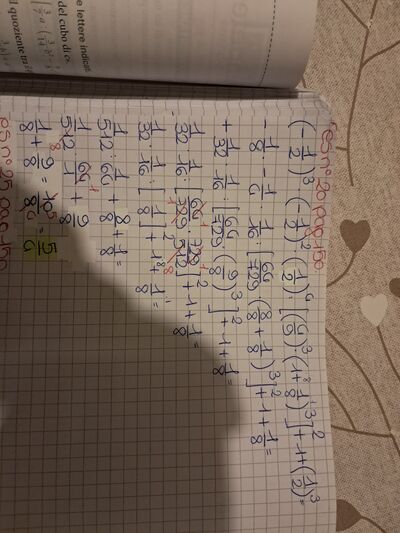 e lettere indicat
del cubo di
l quoziente tra
es n° 20 pag 150
(-1/2)³ · (-1/2)² : (1/2)⁴ : [(4/9)³ · (1+1/8)³]² + 1 + (1/2)³ =
-1/8 · -1/4 : 1/16 : [64/729 · (8/8 + 1/8)³]² + 1 + 1/8 =
+1/32 : 1/16 : [64/729 · (9/8)³]² + 1 + 1/8 =
1/32 : 1/16 : [64/729 · 729/512]² + 1 + 1/8 =
1/32 : 1/16 : [1/8]² + 1 + 1/8 =
1/512 : 1/64 + 8/8 + 1/8 =
1/512 · 64/1 + 9/8
1/8 + 9/8 = 10/8 = 5/4
es n° 25 pag 150